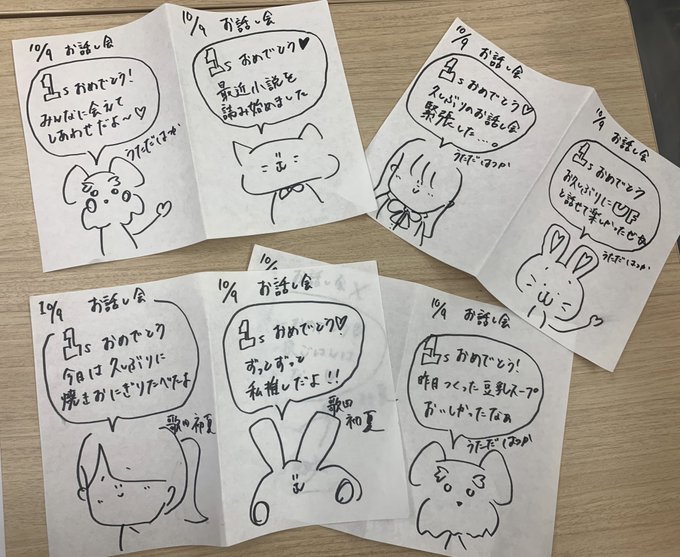 10/9 お話し会
1s おめでとう!
みんなに会えて
しあわせだよ〜♡
うただはつか
10/9 お話し会
1s おめでとう♥
最近小説を
読み始めました
10/9 お話し会
1s おめでとう♡
久しぶりのお話し会
緊張した…。
うただはつか
10/9 お話し会
1s おめでとう
お久しぶりに
と話せて楽しかったぜ
うただはつか
10/9 お話し会
1s おめでとう
今日は久しぶりに
焼きおにぎりたべたよ
歌田初夏
10/9 お話し会
1s おめでとう♡
ずっとずっと
私推しだよ!!
歌田
初夏
10/9 お話し会
1s おめでとう!
昨日つくった豆乳スープ
おいしかったなぁ
うただはつか